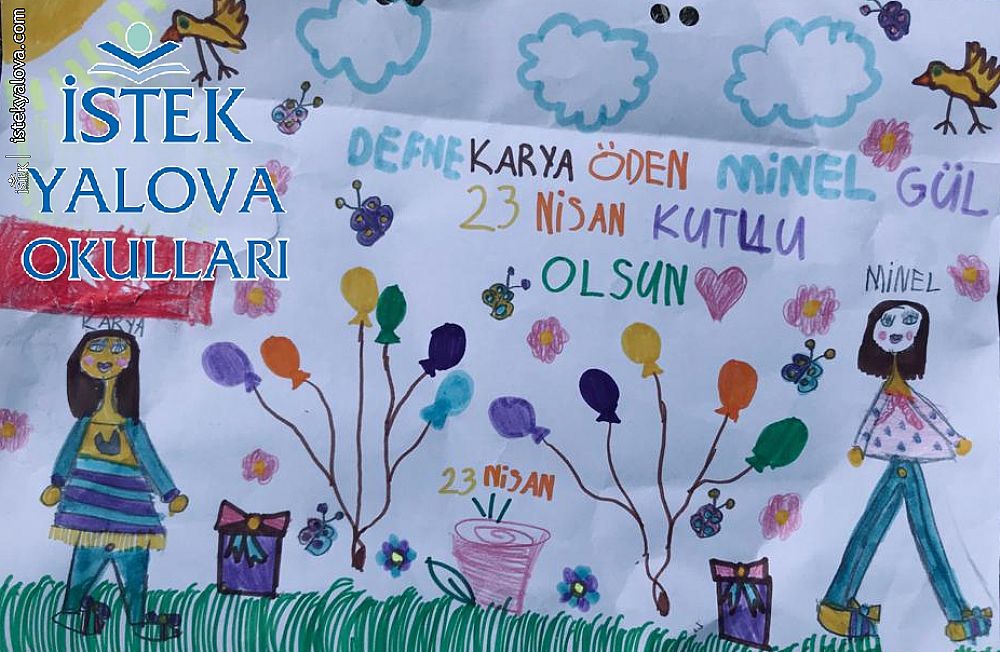 istekyalova.com
İSTEK
YALOVA
OKULLARI
DEFNE KARYA ÖDEN MİNEL GÜL
23 NiSAN KUTLU
OLSUN
MİNEL
KARYA
23 NiSAN